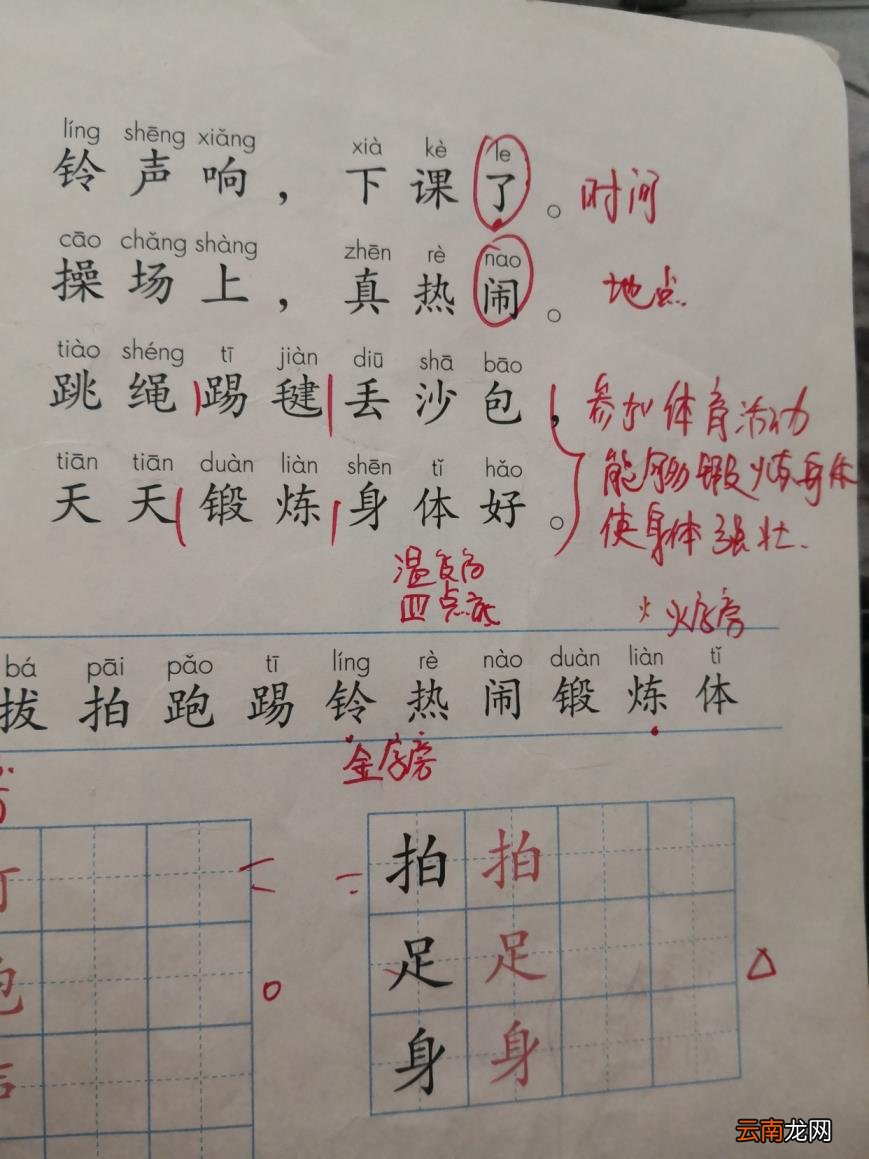 líng shēng xiǎng xià kè le
铃声响，下课了。时间
cāo chǎng shàng zhēn rè nao
操场上，真热闹。地点
tiào shéng tī jiàn diū shā bāo
跳绳踢毽丢沙包，参加体育活动
tiān tiān duàn liàn shēn tǐ hǎo
天天锻炼身体好。能够锻炼身体
使身体强壮.
四点底
火 火字旁
bá pāi pǎo tī líng rè nào duàn liàn tǐ
拔拍跑踢铃热闹锻炼体
金字旁
拍拍
足足
身身
云南龙网